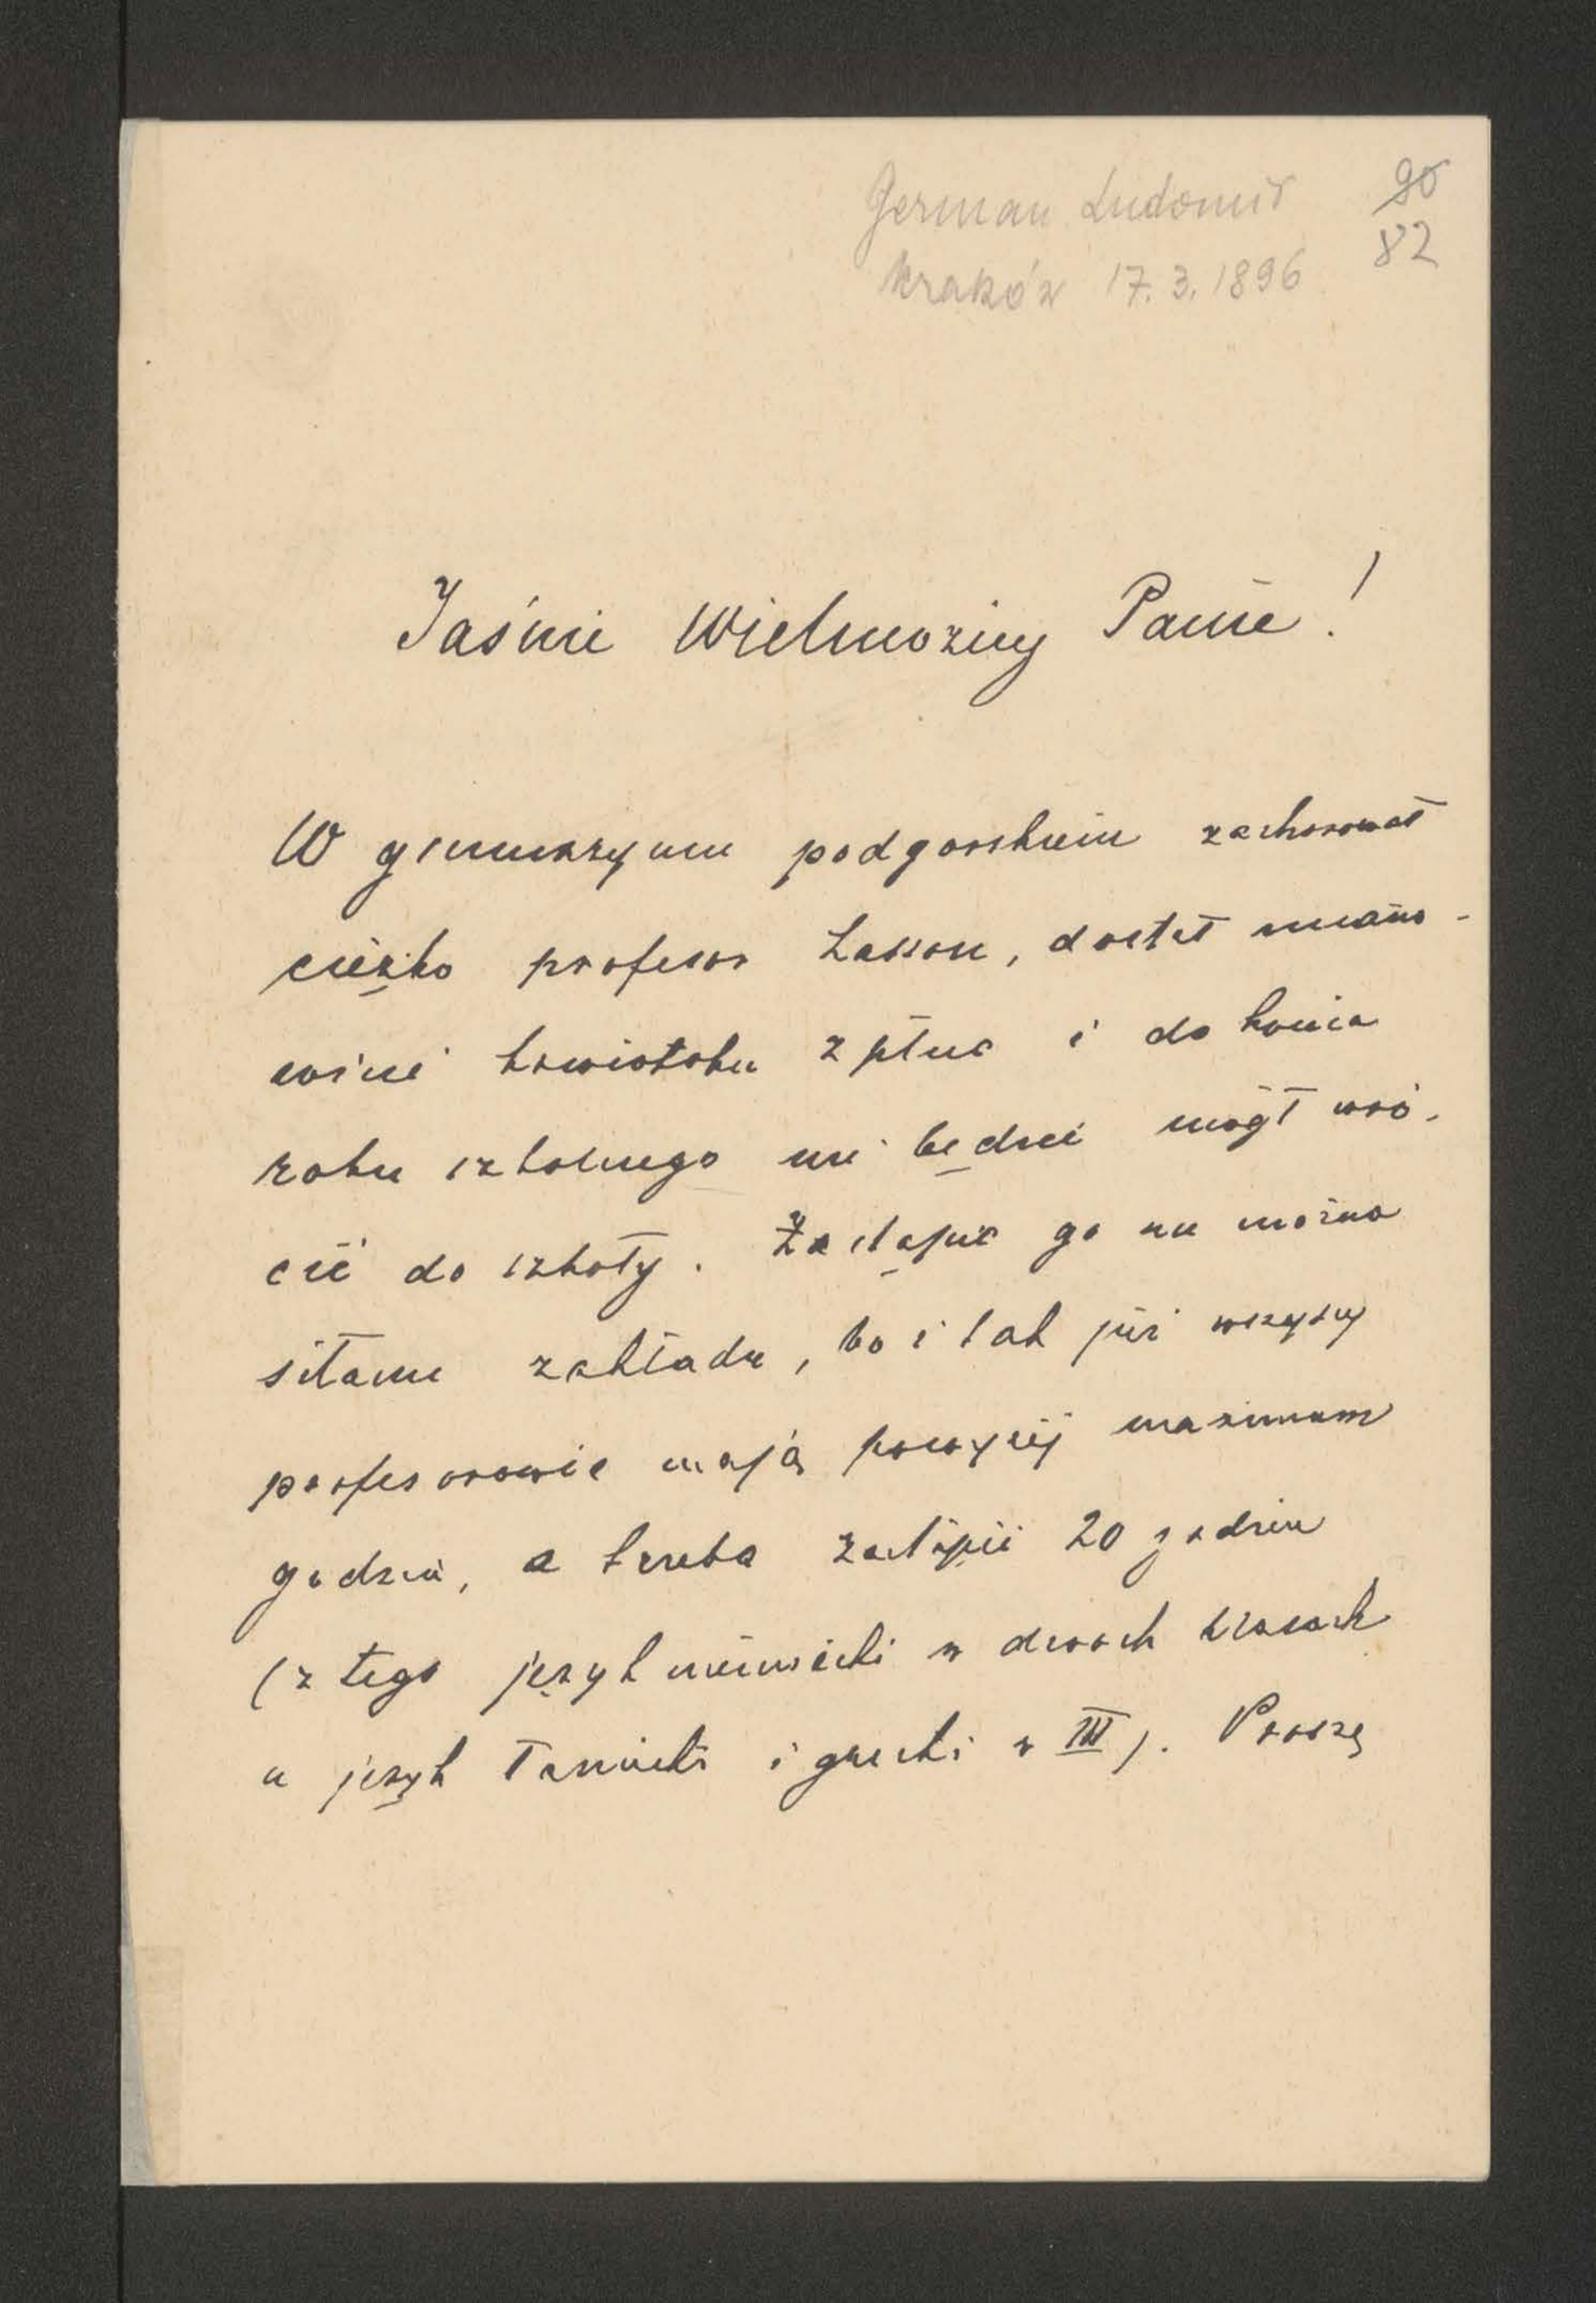 German Ludomir 90
Kraków 17.3.1896 82
Jaśnie Wielmożny Panie!
W gimnazyum podgorskiem zachorował
ciężko profesor Lasson, dostał miano-
wicie krwiotoku z płuc i do końca
roku szkolnego nie będzie mógł wró-
cić do szkoły. Zastąpić go nie można
siłami zakładu, bo i tak już wszyscy
profesorowie mają powyżej maximum
godzin, a trzeba zastąpić 20 godzin
(z tego język niemiecki w dwóch klasach
a język łaciński i grecki w III). Proszę